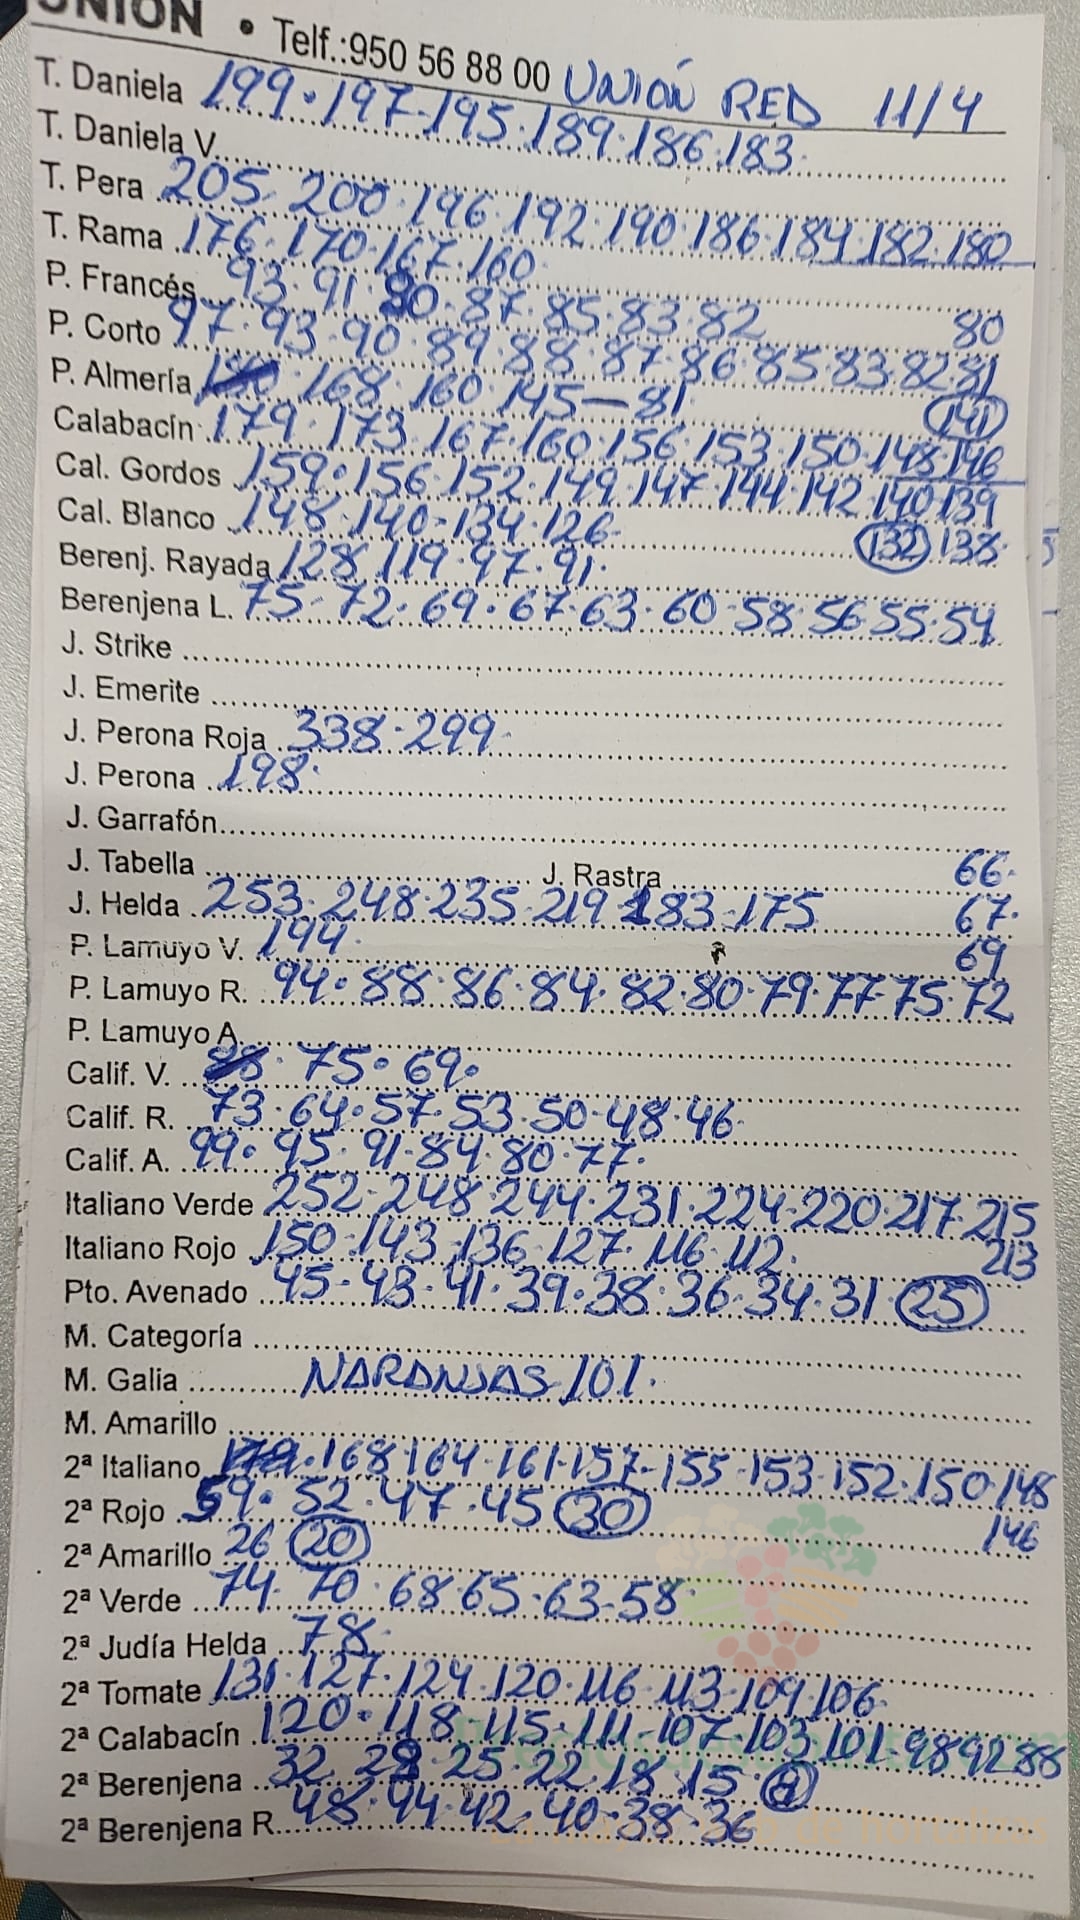 UNION • Telf.:950 56 88 00 UNIÓN RED 11/4
T. Daniela 199·197-195·189·186·183·
T. Daniela V.
T. Pera 205·200·196·192·190·186·184·182·180
T. Rama 176·170·167·160·
P. Francés 93·91·90·87·85·83·82 80
P. Corto 97·93·90·89·88·87·86·85·83·82·81
P. Almería 168·160·145-81· 141
Calabacín 179·173·167·160·156·153·150·148·146
Cal. Gordos 159·156·152·149·147·144·142·140·139
Cal. Blanco 148·140-134·126· 132 138·
Berenj. Rayada 128·119·97·91·
Berenjena L. 75-72·69·67·63·60-58·56·55·54
J. Strike
J. Emerite
J. Perona Roja 338·299·
J. Perona 198·
J. Garrafón
J. Tabella J. Rastra 66·
J. Helda 253·248·235·219·183·175 67·
P. Lamuyo V. 194· 69
P. Lamuyo R. 94·88·86·84·82·80·79·77·75·72
P. Lamuyo A.
Calif. V. 75·69·
Calif. R. 73·64·57·53·50-48·46·
Calif. A. 99·95·91-84·80·77·
Italiano Verde 252-248·244·231·224-220·217·215
Italiano Rojo 150·143·136·127·116·112· 213
Pto. Avenado 45-43·41·39·38·36·34·31· 25
M. Categoría
M. Galia NARANJAS 101·
M. Amarillo
2ª Italiano 168·164·161·157-155·153·152·150·148
2ª Rojo 59·52·47·45 30 146
2ª Amarillo 26 20
2ª Verde 74·70·68·65·63-58·
2ª Judía Helda 78·
2ª Tomate 131·127·124·120·116·113·109·106·
2ª Calabacín 120·118·115·111-107·103·101·98·92·88
2ª Berenjena 32·28·25·22·18·15·
2ª Berenjena R. 48·44·42·40·38·36